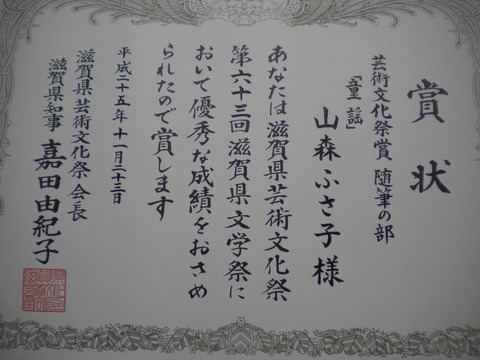 賞状
芸術文化祭賞 随筆の部
「童謡」
山森ふさ子 様
あなたは滋賀県芸術文化祭
第六十三回滋賀県文学祭に
おいて優秀な成績をおさめ
られたので賞します
平成二十五年十一月二十三日
滋賀県芸術文化祭会長
滋賀県知事 嘉田由紀子